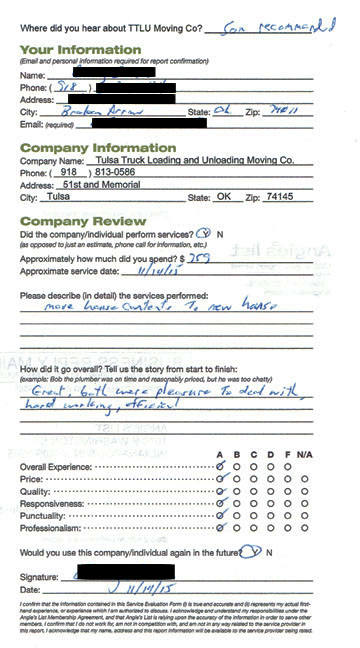 Where did you hear about TTLU Moving Co? Son recommended
Your Information
(Email and personal information required for report confirmation)
Name:
Phone: ( 918 )
Address:
City: Broken Arrow State: Ok Zip: 74011
Email: (required)
Company Information
Company Name: Tulsa Truck Loading and Unloading Moving Co.
Phone: ( 918 ) 813-0586
Address: 51st and Memorial
City: Tulsa State: OK Zip: 74145
Company Review
Did the company/individual perform services? Y N
(as opposed to just an estimate, phone call for information, etc.)
Approximately how much did you spend? $ 259
Approximate service date: 11/14/15
Please describe (in detail) the services performed:
move house contents to new house
How did it go overall? Tell us the story from start to finish:
(example: Bob the plumber was on time and reasonably priced, but he was too chatty)
Great, both were pleasure to deal with,
hard working, efficient
A B C D F N/A
Overall Experience:
Price:
Quality:
Responsiveness:
Punctuality:
Professionalism:
Would you use this company/individual again in the future? Y N
Signature:
Date: 11/14/15
I confirm that the information contained in this Service Evaluation Form (i) is true and accurate and (ii) represents my actual first-
hand experience, or experience which I am authorized to discuss. I acknowledge and understand my responsibilities under the
Angie's List Membership Agreement, and that Angie's List is relying upon the accuracy of the information in order to serve other
members. I confirm that I do not work for, am not in competition with, and am not in any way related to the service provider in
this report. I acknowledge that my name, address and this report information will be available to the service provider being rated.